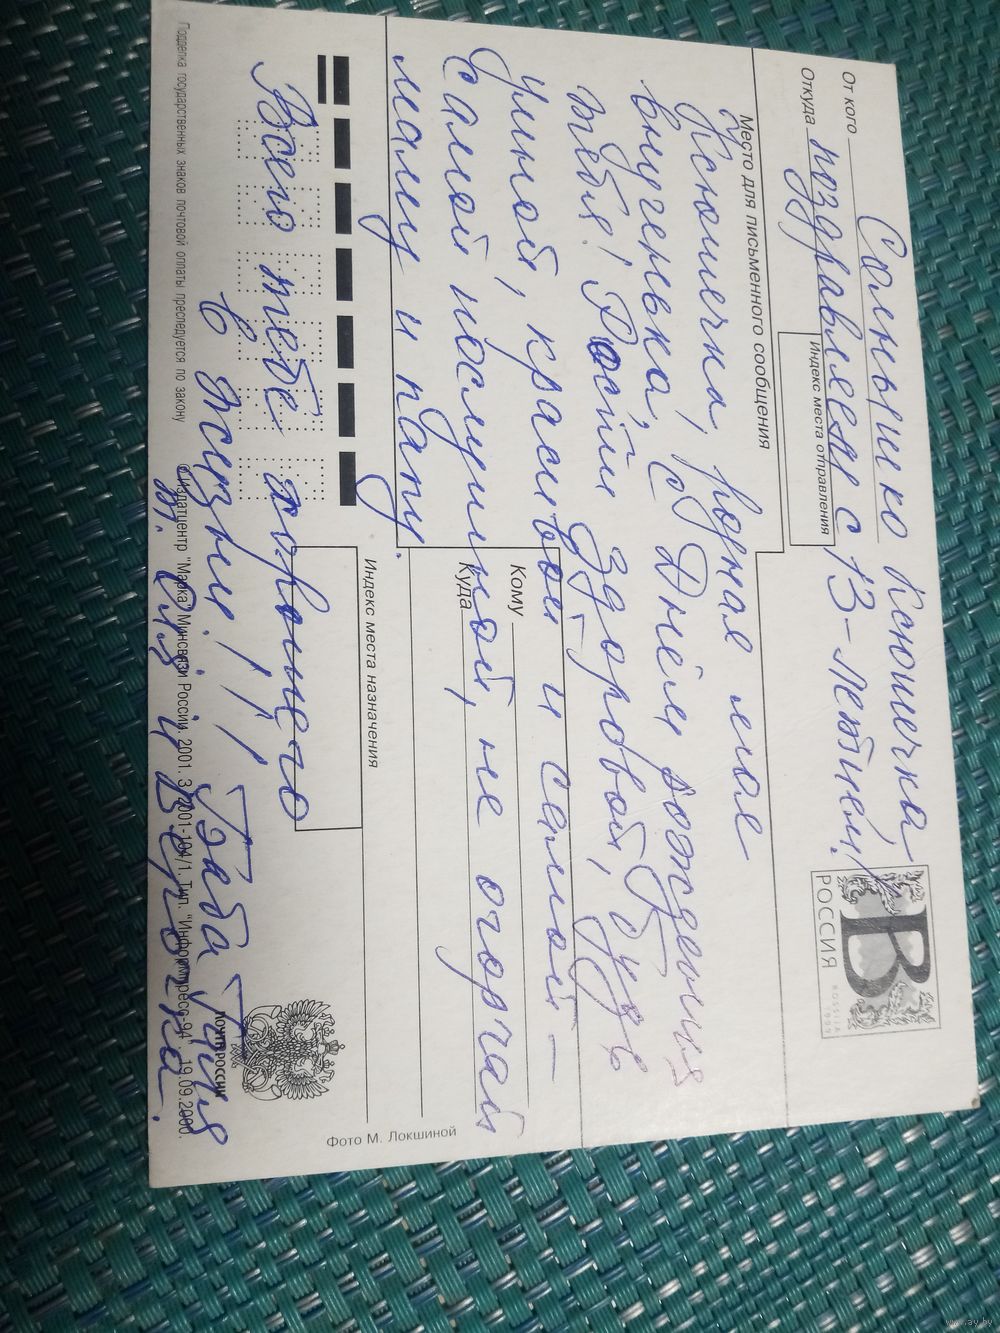 От кого
Солнышко Ксюшечка
Откуда
поздравляем с 13-летием!
Индекс места отправления
В
РОССИЯ
ROSSIJA
Место для письменного сообщения
Ксюшечка, родная моя
внученька, с Днём рождения
тебя! Расти здоровой, будь
умной, красивой и самой-
самой послушной, не огорчай
маму и папу.
Всего тебе хорошего
в жизни!!! Баба Таня
Кому
Куда
Индекс места назначения
ПОЧТА РОССИИ
Фото М. Локшиной
Подделка государственных знаков почтовой оплаты преследуется по закону
© Издатцентр "Марка" Минсвязи России. 2001. З. 2001-104/1. Тип. "Информпресс-94". 19.09.2000.
www.ay.by